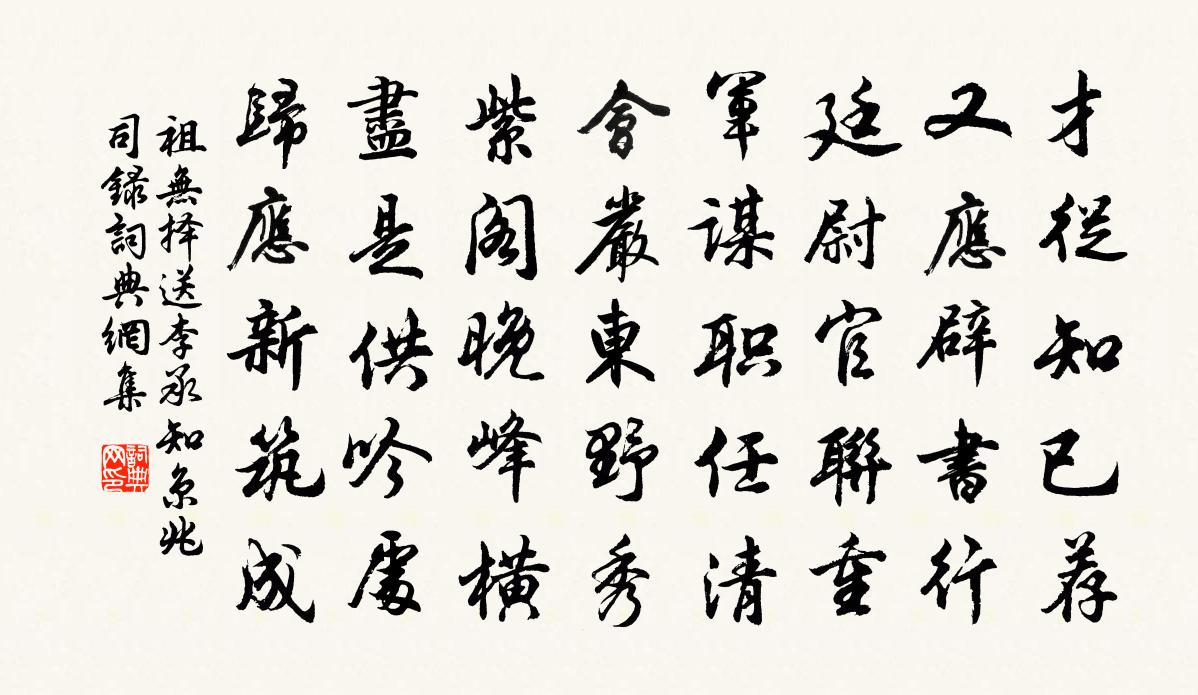 才從知已荐
又應辟書行
廷尉官聯重
軍謀职任清
會嚴東野秀
紫阁晚峰橫
盡是供吟處
歸應新筑成
祖無择送李承知京兆
司錄詞典網集
詞典网印